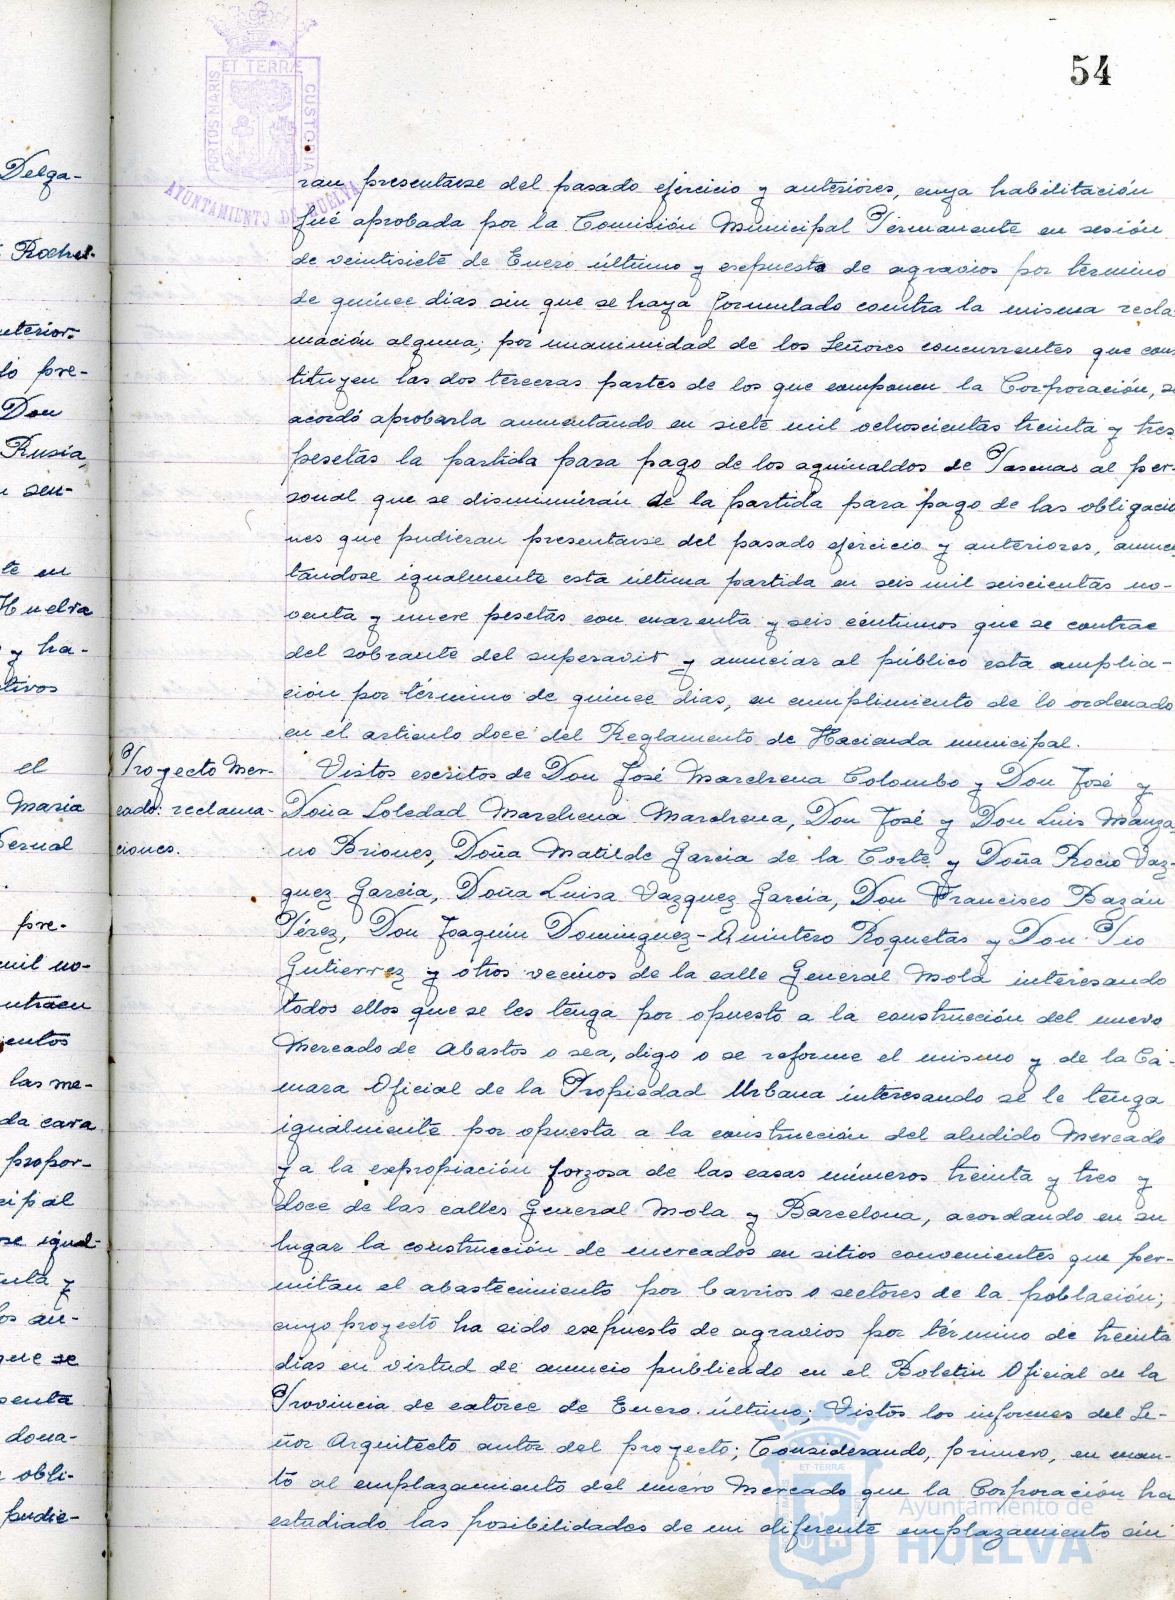 54
PORTUS MARIS
ET TERRÆ
CUSTODIA
AYUNTAMIENTO DE HUELVA
Delga-
Rochel-
nterior-
ló pre-
Don
Rusia,
n sen-
te en
Huelva
y ha-
tivos
el
María
Desual
pre-
mil no-
ntraen
ientos
las me-
da cara
propor-
cipal
ose igual-
enta y
los an-
que se
senta
dona-
obli-
pudie-
ran presentarse del pasado ejercicio y anteriores, cuya habilitación
fué aprobada por la Comisión Municipal Permanente en sesión
de veintisiete de Enero último y expuesta de agravios por término
de quince dias sin que se haya formulado contra la misma recla-
mación alguna; por unanimidad de los Señores concurrentes que cons
tituyen las dos terceras partes de los que componen la Corporación, se
acordó aprobarla aumentando en siete mil ochoscientas treinta y tres
pesetas la partida para pago de los aguinaldos de Pascuas al per-
sonal que se disminuirán de la partida para pago de las obligacio
nes que pudieran presentarse del pasado ejercicio y anteriores, aumen
tándose igualmente esta última partida en seis mil seiscientas no-
venta y nueve pesetas con cuarenta y seis céntimos que se contrae
del sobrante del superavit y anunciar al público esta amplia-
ción por término de quince dias, en cumplimiento de lo ordenado
en el articulo doce del Reglamento de Hacienda municipal.
Proyecto Mer-
cado: reclama-
ciones.
Vistos escritos de Don José Marchena Colombo y Don José y
Doña Soledad Marchena Marchena, Don José y Don Luis Manza
no Briones, Doña Matilde Garcia de la Corte y Doña Rocio Vaz-
quez Garcia, Doña Luisa Vazquez Garcia, Don Francisco Bazán
Pérez, Don Joaquin Dominguez-Quintero Roquetas y Don Pio
Gutierrez y otros vecinos de la calle General Mola interesando
todos ellos que se les tenga por opuesto a la construcción del nuevo
Mercado de Abastos o sea, digo o se reforme el mismo y de la Cá-
mara Oficial de la Propiedad Urbana interesando se le tenga
igualmente por opuesta a la construcción del aludido Mercado
y a la expropiación forzosa de las casas números treinta y tres y
doce de las calles General Mola y Barcelona, acordando en su
lugar la construcción de mercados en sitios convenientes que per-
mitan el abastecimiento por barrios o sectores de la población;
cuyo proyecto ha sido expuesto de agravios por término de treinta
dias en virtud de anuncio publicado en el Boletin Oficial de la
Provincia de catorce de Enero último; Vistos los informes del Se-
ñor Arquitecto autor del proyecto; Considerando, primero, en cuan-
to al emplazamiento del nuevo Mercado que la Corporación ha
estudiado las posibilidades de un diferente emplazamiento sin
ET TERRÆ
Ayuntamiento de
HUELVA